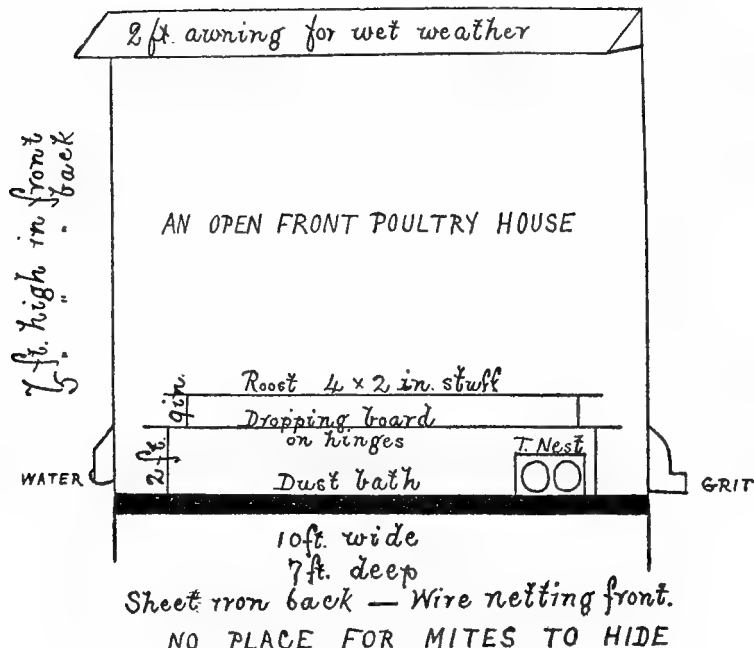 2 ft. awning for wet weather
7 ft. high in front
5 " " " back
AN OPEN FRONT POULTRY HOUSE
Roost 4 x 2 in. stuff
9 in.
Dropping board
on hinges
2 ft.
T. Nest
Dust bath
WATER
GRIT
10 ft. wide
7 ft. deep
Sheet iron back — Wire netting front.
NO PLACE FOR MITES TO HIDE